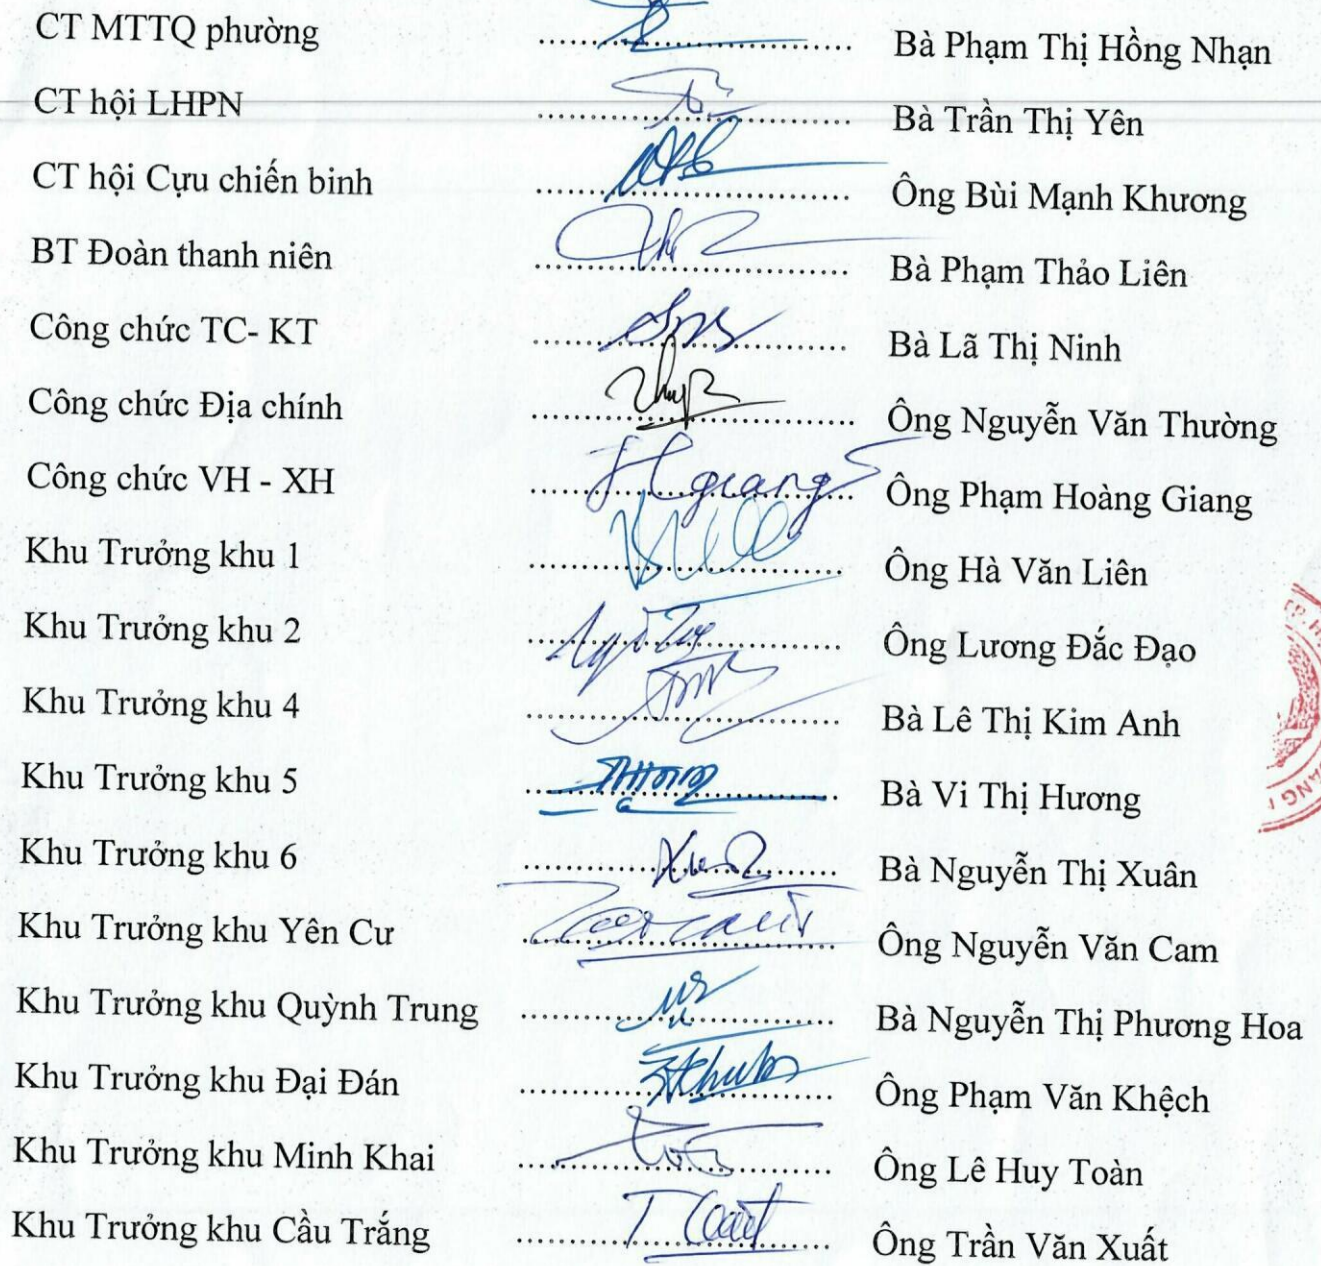 CT MTTQ phường .................... Bà Phạm Thị Hồng Nhạn
CT hội LHPN .................... Bà Trần Thị Yên
CT hội Cựu chiến binh .................... Ông Bùi Mạnh Khương
BT Đoàn thanh niên .................... Bà Phạm Thảo Liên
Công chức TC- KT .................... Bà Lã Thị Ninh
Công chức Địa chính .................... Ông Nguyễn Văn Thường
Công chức VH - XH .................... Ông Phạm Hoàng Giang
Khu Trưởng khu 1 .................... Ông Hà Văn Liên
Khu Trưởng khu 2 .................... Ông Lương Đắc Đạo
Khu Trưởng khu 4 .................... Bà Lê Thị Kim Anh
Khu Trưởng khu 5 .................... Bà Vi Thị Hương
Khu Trưởng khu 6 .................... Bà Nguyễn Thị Xuân
Khu Trưởng khu Yên Cư .................... Ông Nguyễn Văn Cam
Khu Trưởng khu Quỳnh Trung .................... Bà Nguyễn Thị Phương Hoa
Khu Trưởng khu Đại Đán .................... Ông Phạm Văn Khệch
Khu Trưởng khu Minh Khai .................... Ông Lê Huy Toàn
Khu Trưởng khu Cầu Trắng .................... Ông Trần Văn Xuất